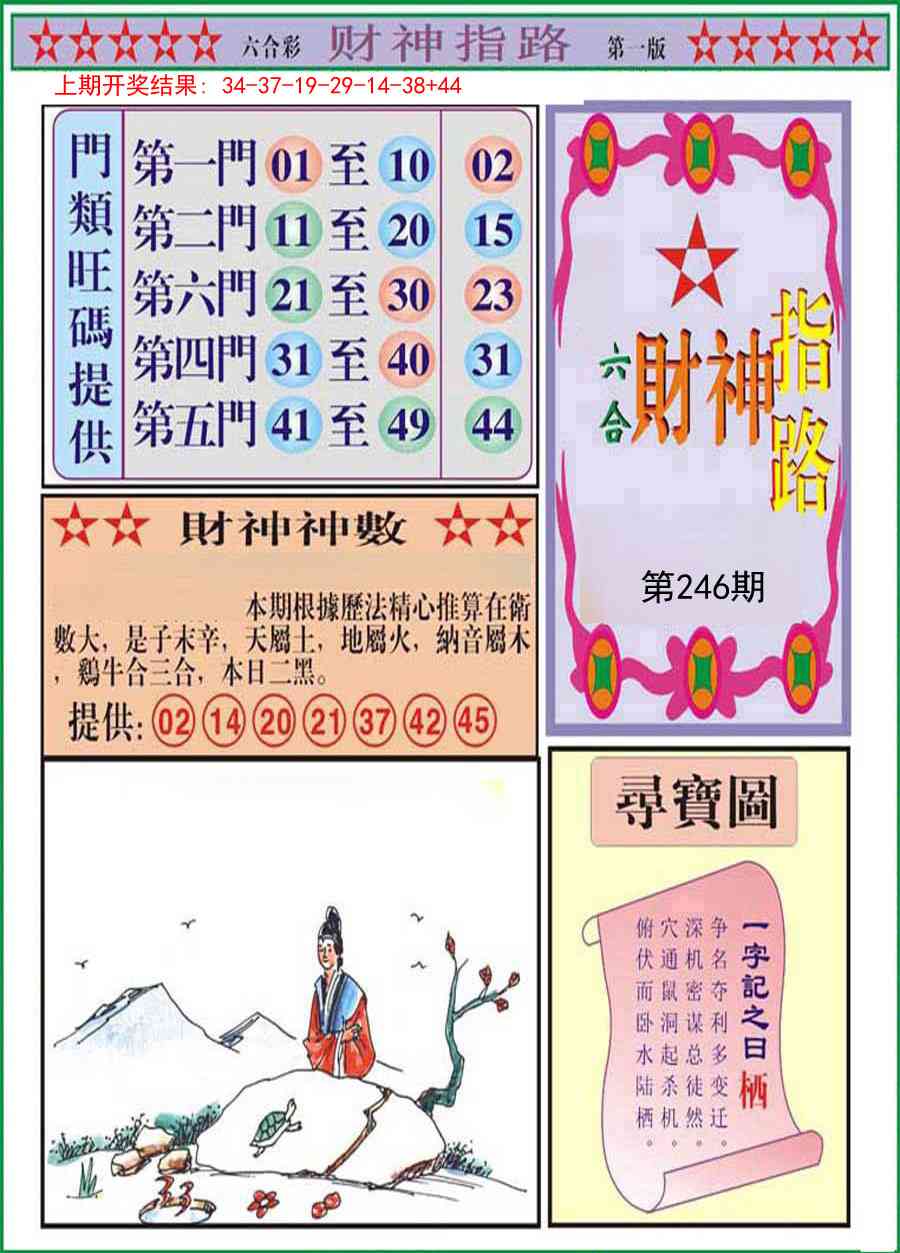 六合彩 财神指路 第一版
上期开奖结果：34-37-19-29-14-38+44
門類旺碼提供
第一門 01 至 10 02
第二門 11 至 20 15
第六門 21 至 30 23
第四門 31 至 40 31
第五門 41 至 49 44
六合
財神
指路
第246期
財神神數
本期根據歷法精心推算在衛
數大，是子末辛，天屬土，地屬火，納音屬木
，鷄牛合三合，本日二黑。
提供: 02 14 20 21 37 42 45
尋寶圖
一字記之曰 栖
争名夺利多变迁。
深机密谋总徒然。
穴通鼠洞起杀机。
俯伏而卧水陆栖。
33